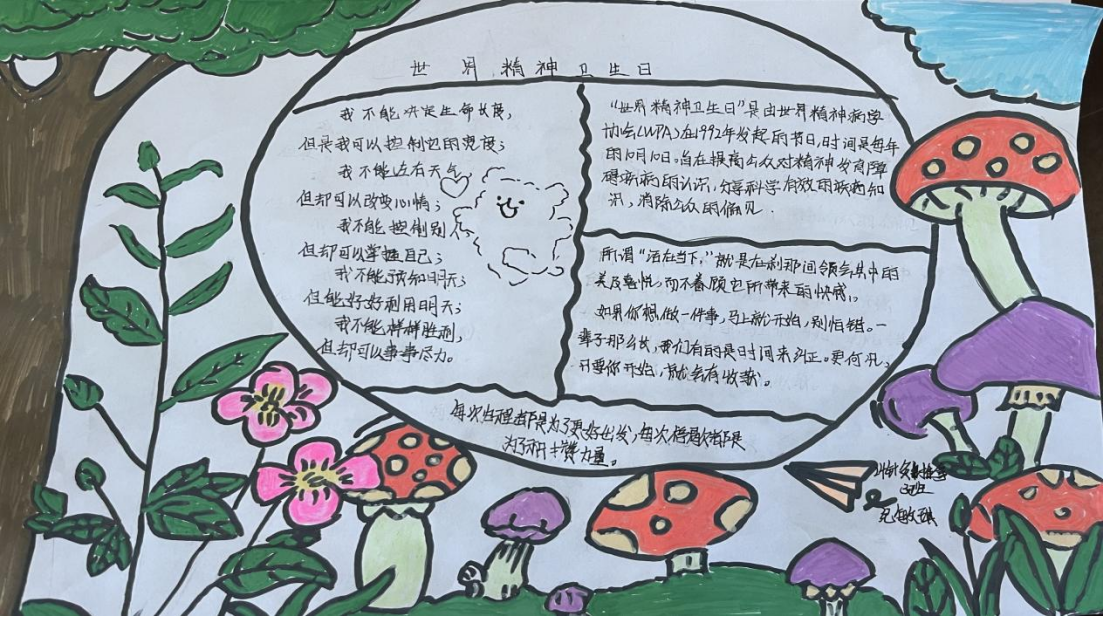 世界精神卫生日
我不能决定生命长度，
但是我可以控制它的宽度；
我不能左右天气，
但却可以改变心情；
我不能控制别人
但却可以掌握自己；
我不能预知明天；
但能好好利用明天；
我不能样样胜利，
但却可以事事尽力。
“世界精神卫生日”是由世界精神病学
协会(WPA)在1992年发起的节日，时间是每年
的10月10日。旨在提高公众对精神发育障
碍疾病的认识，分享科学有效的疾病知
识，消除公众的偏见。
所谓“活在当下，”就是在刹那间领会其中的
美及喜悦，而不眷顾它所带来的快感，。
如果你想做一件事，马上就开始，别怕错。一
辈子那么长，我们有的是时间来纠正。更何况，
只要你开始，就会有收获。
每次归程都是为了更好出发，每次停歇都是
为了积攒力量。